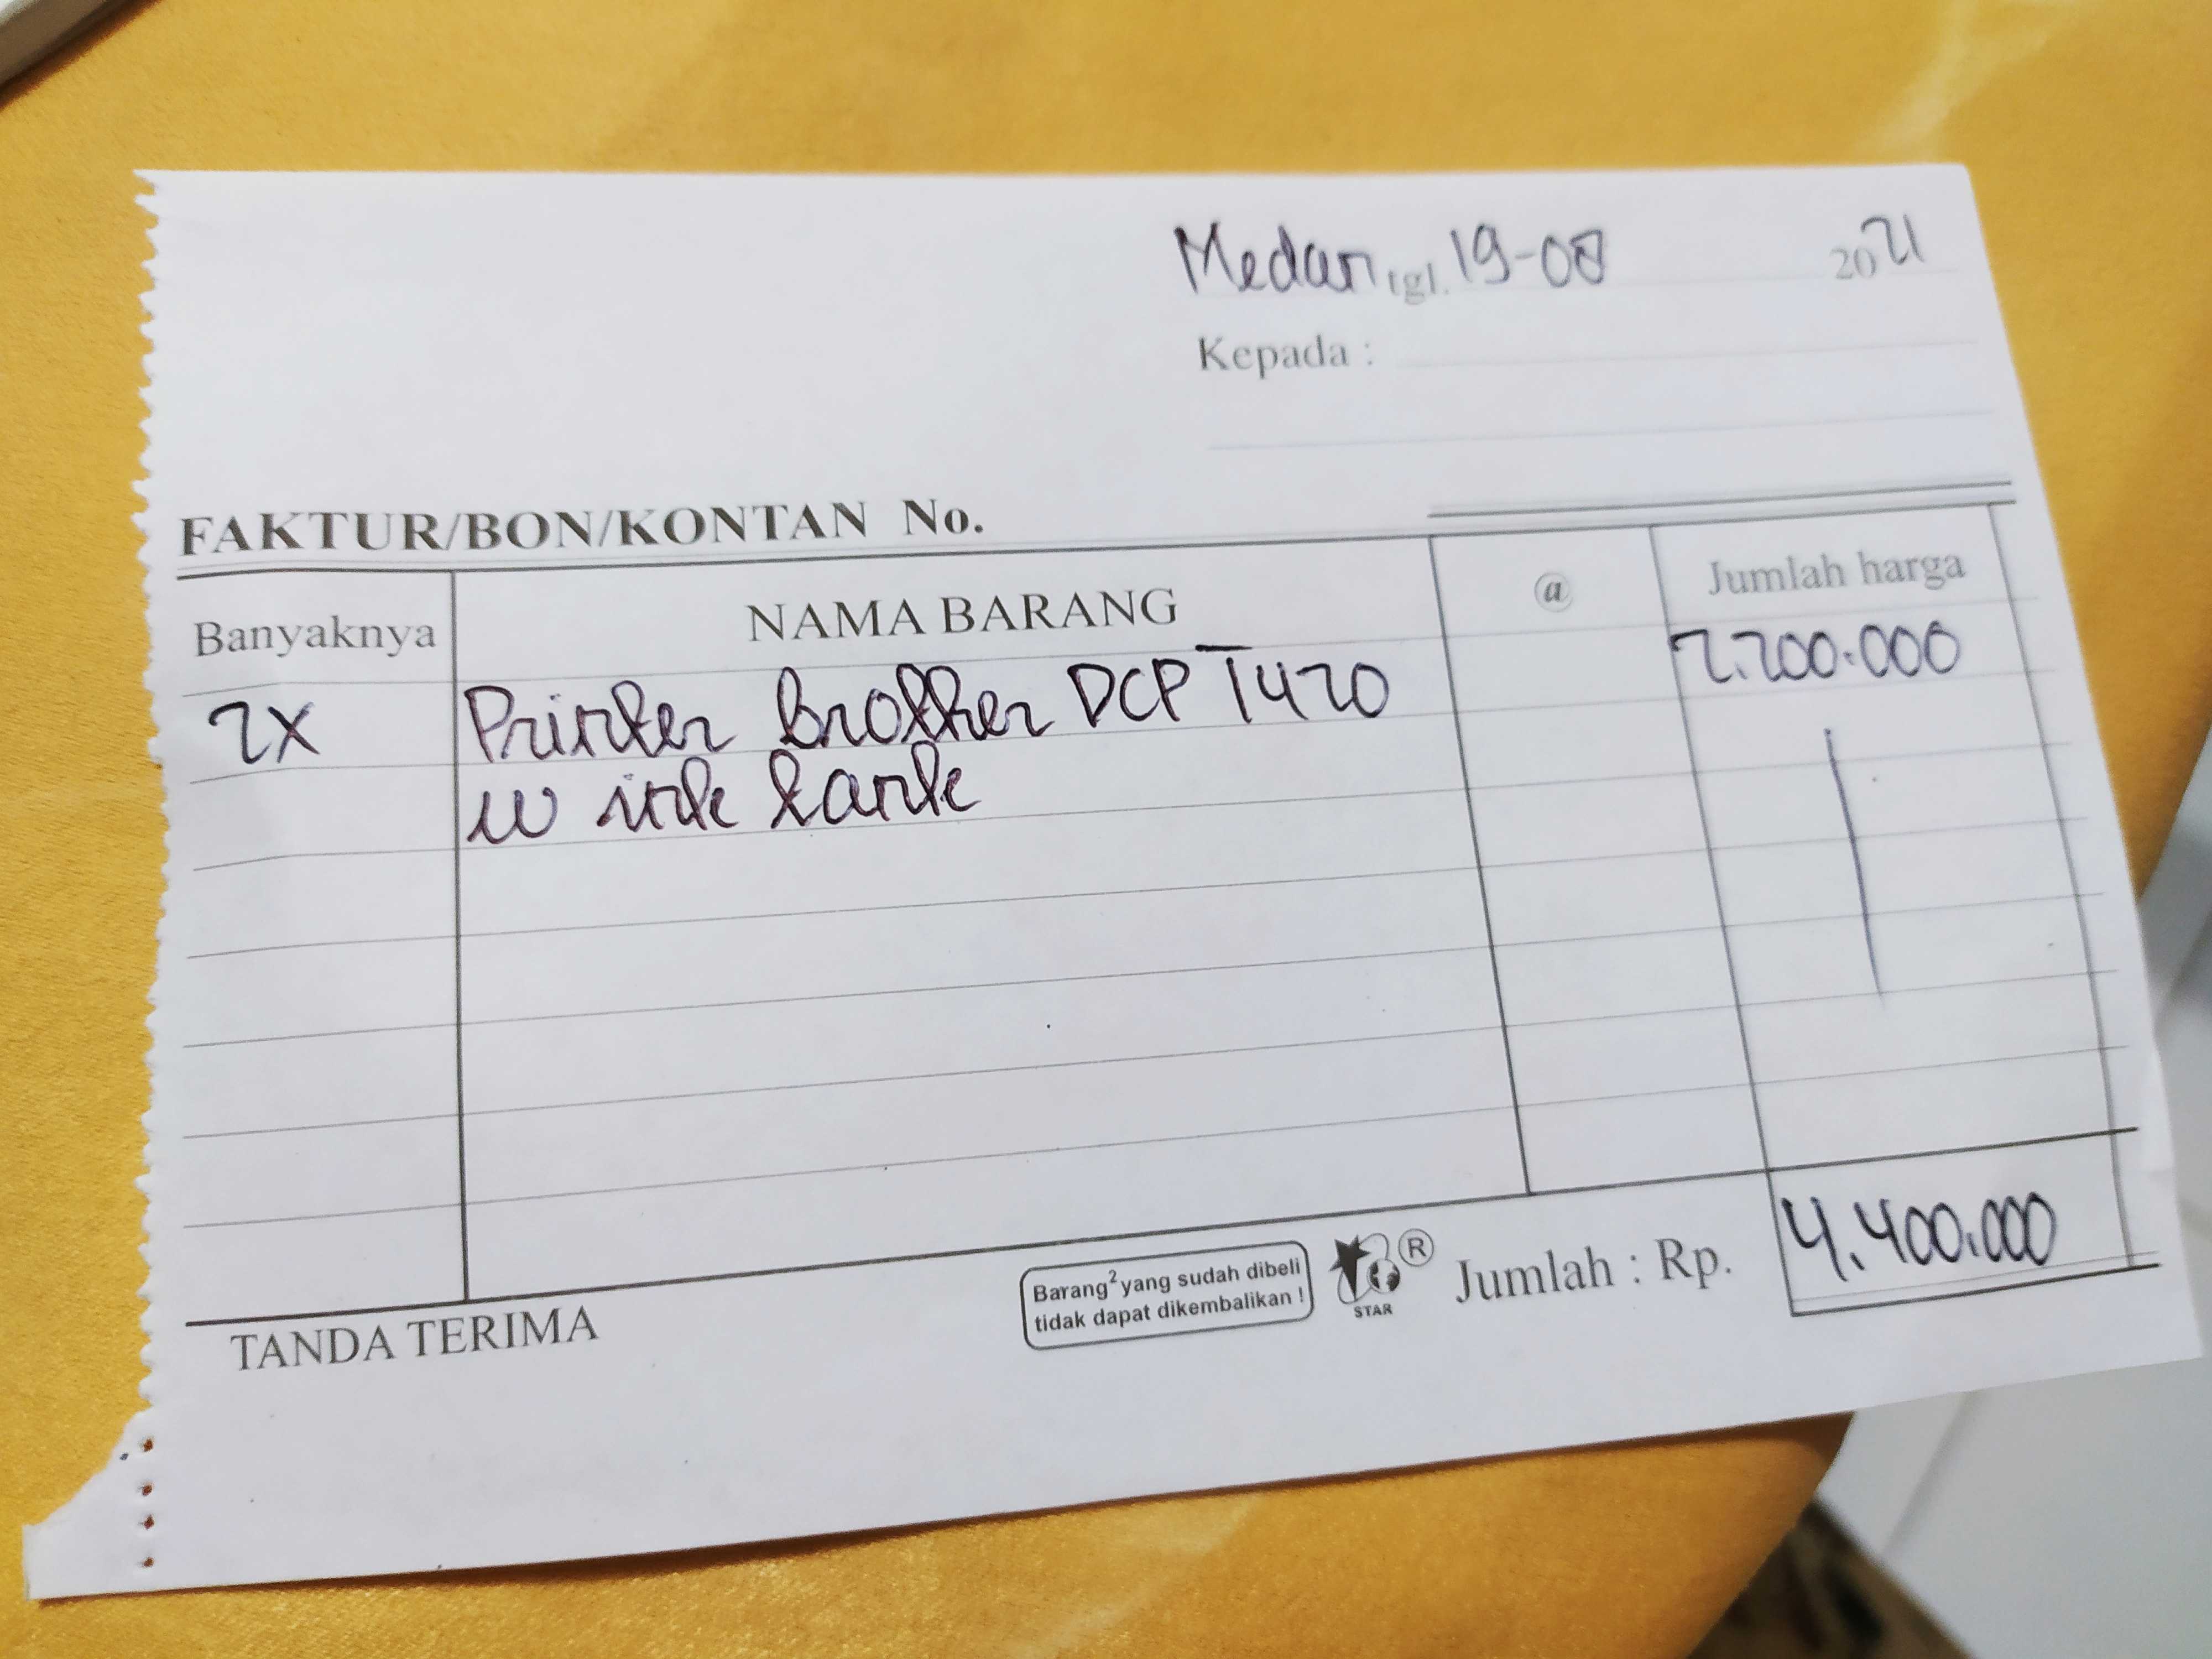 Medan, tgl. 19-08 2021
Kepada :
FAKTUR/BON/KONTAN No.
Banyaknya NAMA BARANG @ Jumlah harga
2X Printer Brother DCP T420 2.200.000
w ink tank
TANDA TERIMA
Barang² yang sudah dibeli
tidak dapat dikembalikan !
STAR
®
Jumlah : Rp. 4.400.000